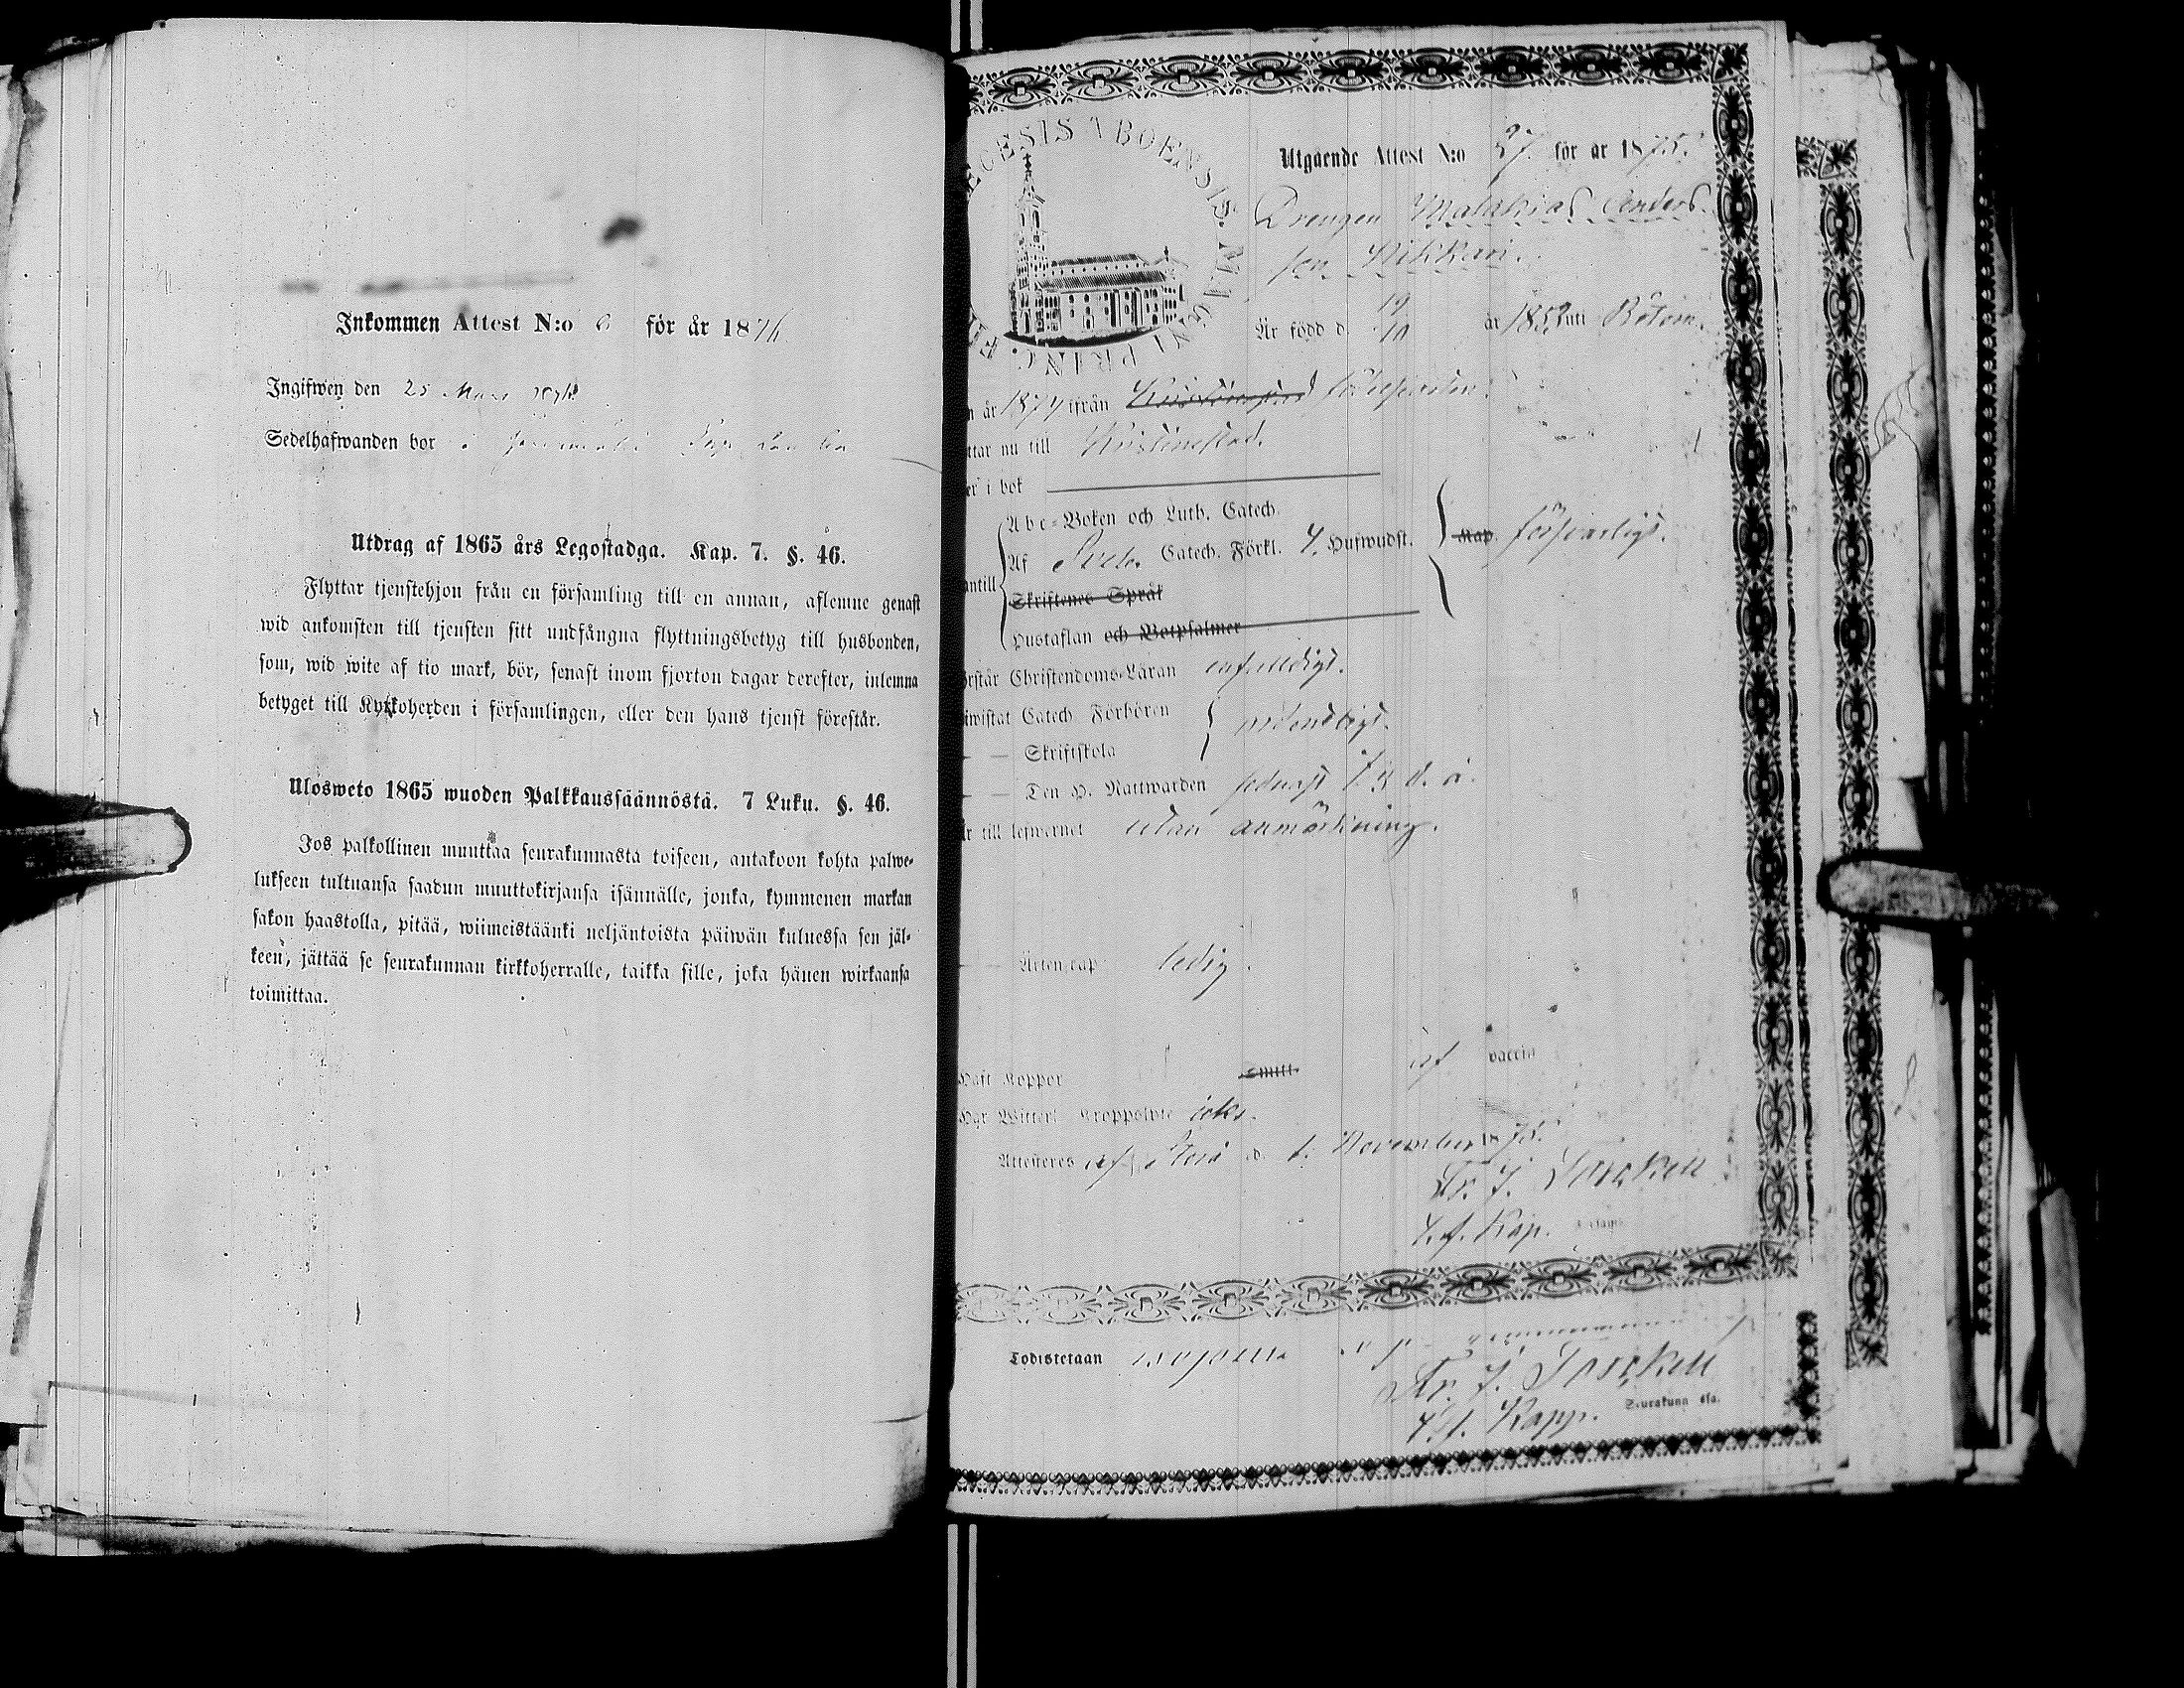 Inkommen Attest N:o 6 för år 1876
Ingifwen den 25 Mars 1876
Sedelhafwanden bor i
Utdrag af 1865 års Legostadga. Kap. 7. §. 46.
Flyttar tjenstehjon från en församling till en annan, aflemne genast
wid ankomsten till tjensten sitt undfångna flyttningsbetyg till husbonden,
som, wid wite af tio mark, bör, senast inom fjorton dagar derefter, inlemna
betyget till Kyrkoherden i församlingen, eller den hans tjenst förestår.
Ulosweto 1865 wuoden Palkkaussäännöstä. 7 Luku. §. 46.
Jos palkollinen muuttaa seurakunnasta toiseen, antakoon kohta palwe-
lukseen tultuansa saadun muuttokirjansa isännälle, jonka, kymmenen markan
sakon haastolla, pitää, wiimeistäänki neljäntoista päiwän kuluessa sen jäl-
keen, jättää se seurakunnan kirkkoherralle, taikka sille, joka hänen wirkaansa
toimittaa.
ECESIS ABOENSIS. MAGNI PRINC.
Utgående Attest N:o 37. för år 1875.
Drengen Malakias Anders-
son Nikkari.
Är född d. 19/10 år 1853 uti Bötom.
n år 1874 ifrån Kristinestad
ttar nu till Kristinestad.
er i bok
Abc-Boken och Luth. Catech.
antill Af Sveb. Catech. Förkl. 4. Hufwudst. Kap. försvarligt.
Skriftenes Språk
Hustaflan och Botpsalmer
örstår Christendoms-Läran enfaldigt.
iwistat Catech Förhören ordentligt.
— Skriftskola
— — Den H. Nattwarden sednast d. å.
Är till lefwernet utan anmärkning.
— — Äctenskap ledig.
Haft Koppor Smitt- vaccin
Har Witterl. Kroppslyte icke.
Attesteres af Storå d. 1. November 1875.
Fr. J. Forskell
V. f. Kap.
Todistetaan
Fr. J. Forskell
V. f. Kapp. Seurakunn ssa.